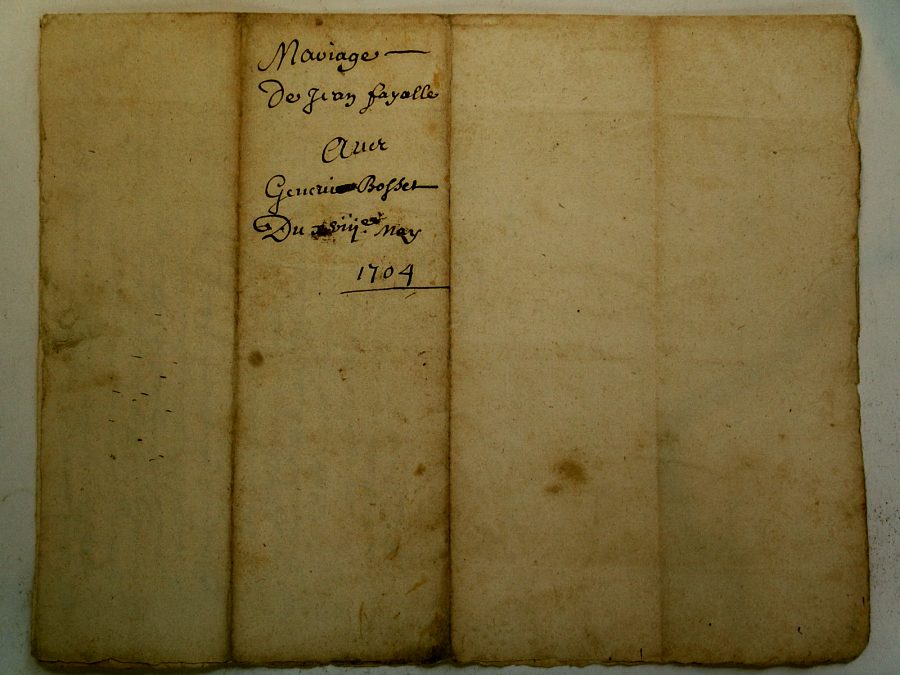 Mariage
De Jean fayolle
Avec
Bosset
Du may
1704